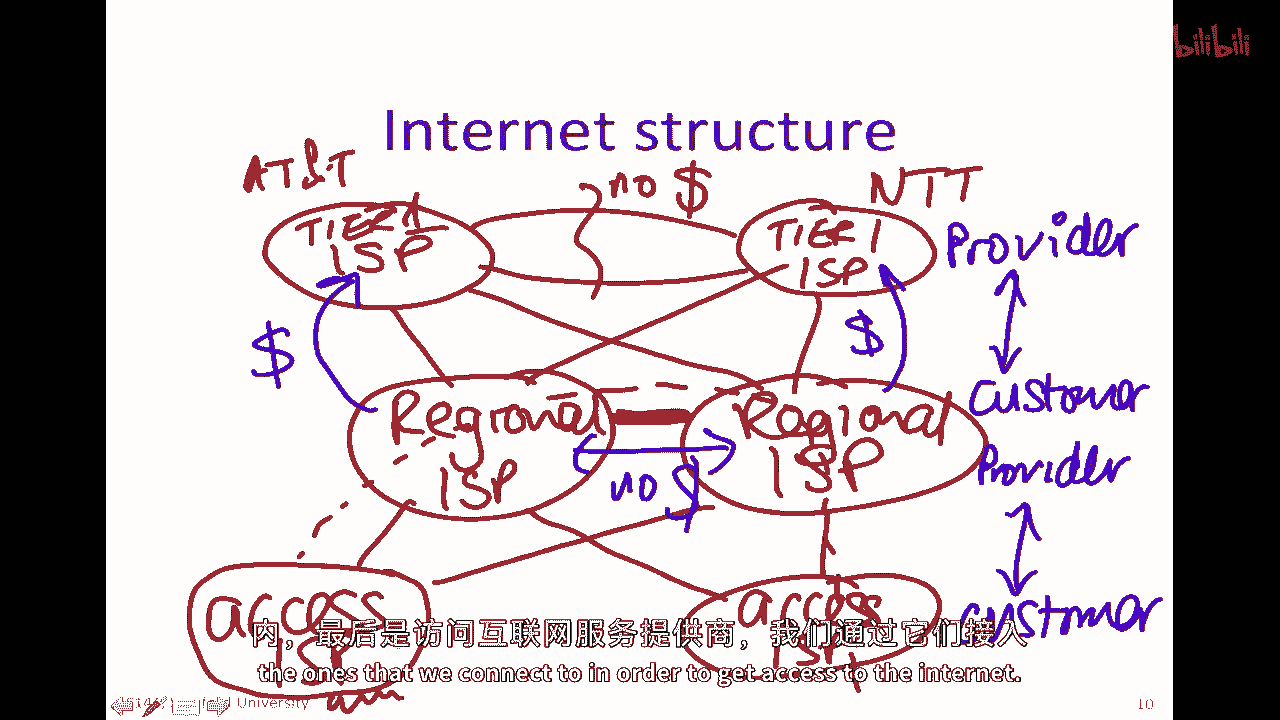 bilibili
Internet structure
AT&T
no $
NTT
TIER 1
ISP
TIER 1
ISP
Provider
$
$
customer
Regional
ISP
Regional
ISP
no $
Provider
access
ISP
access
ISP
customer
内，最后是访问互联网服务提供商，我们通过它们接入
the ones that we connect to in order to get access to the internet.
University
10